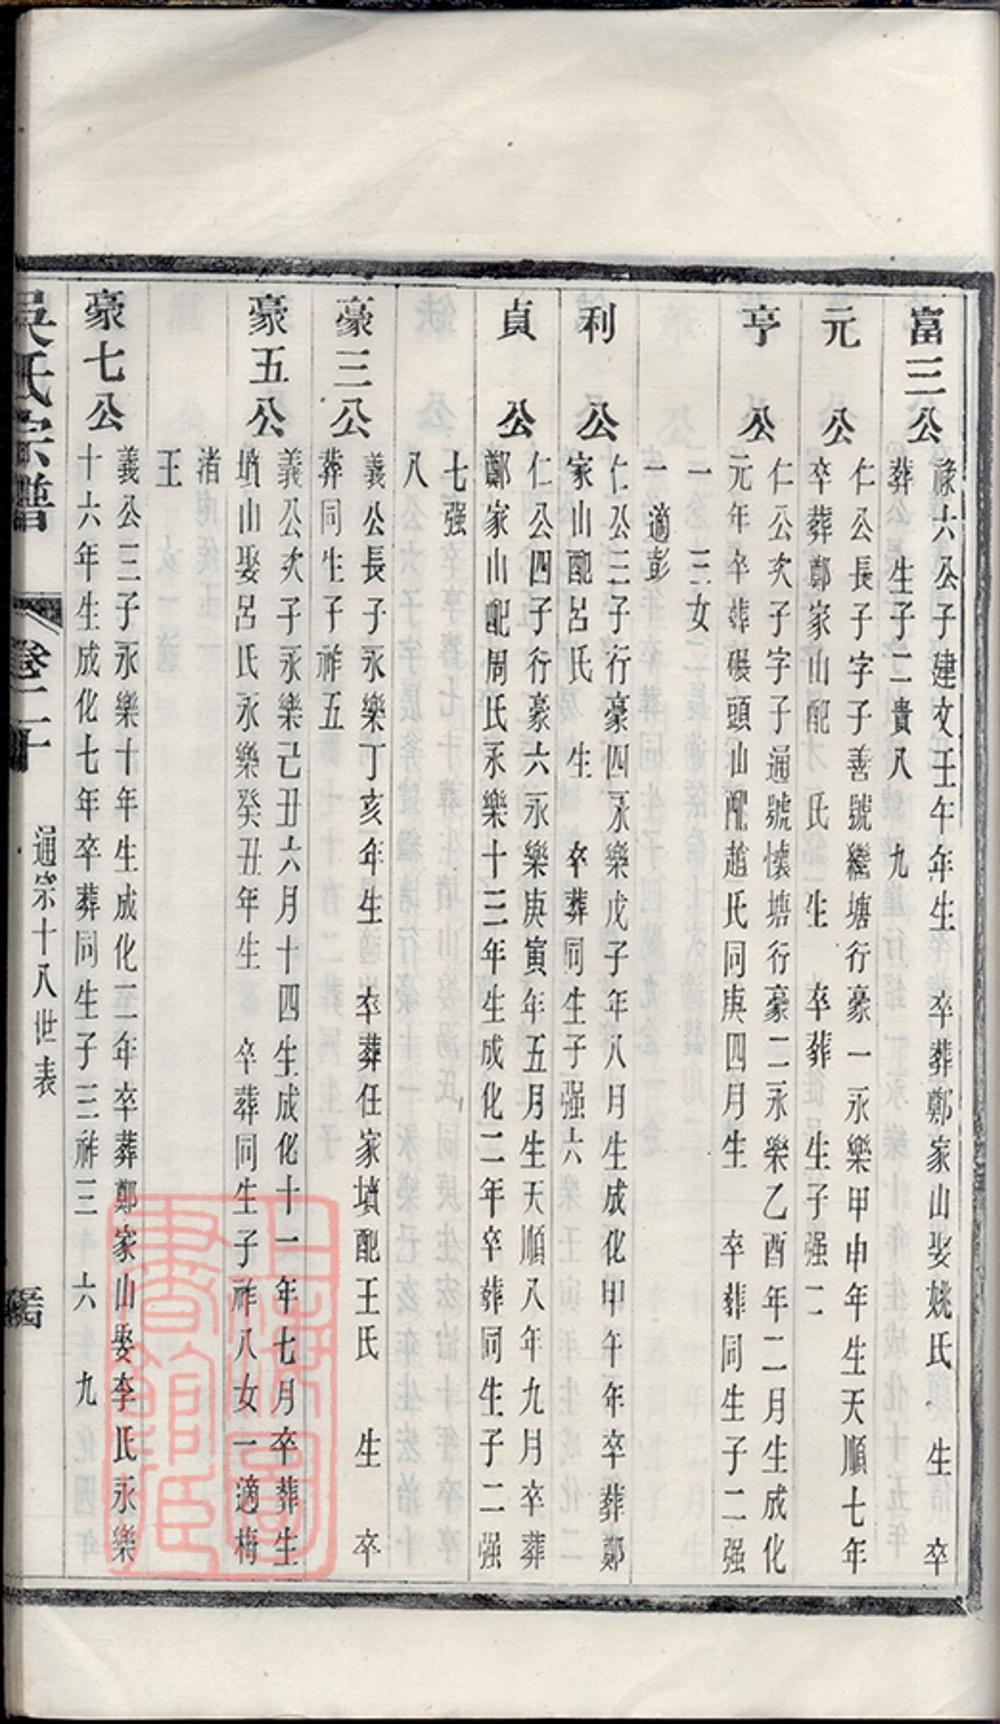 富三公
祿六公子建文壬午年生 卒葬鄭家山娶姚氏 生 卒
葬 生子二貴八 九
元 公
仁公長子字子善號繼塘行豪一永樂甲申年生天順七年
卒葬鄭家山配 氏 生 卒葬 生子强二
亨 公
仁公次子字子通號懷塘行豪二永樂乙酉年二月生成化
元年卒葬碾頭山配趙氏同庚四月生 卒葬同生子二强
一 三女
一適彭
利 公
仁公三子行豪四永樂戊子年八月生成化甲午年卒葬鄭
家山配呂氏 生 卒葬同生子强六
貞 公
仁公四子行豪六永樂庚寅年五月生天順八年九月卒葬
鄭家山配周氏永樂十三年生成化二年卒葬同生子二强
七强
八
豪三公
義公長子永樂丁亥年生 卒葬任家墳配王氏 生 卒
葬同生子祚五
豪五公
義公次子永樂己丑六月十四生成化十一年七月卒葬生
墳山娶呂氏永樂癸丑年生 卒葬同生子祚八女一適梅
渚
王
豪七公
義公三子永樂十年生成化二年卒葬鄭家山娶李氏永樂
十六年生成化七年卒葬同生子三祚三 六 九
吳氏宗譜 卷二十 通宗十八世表
上海圖書館藏